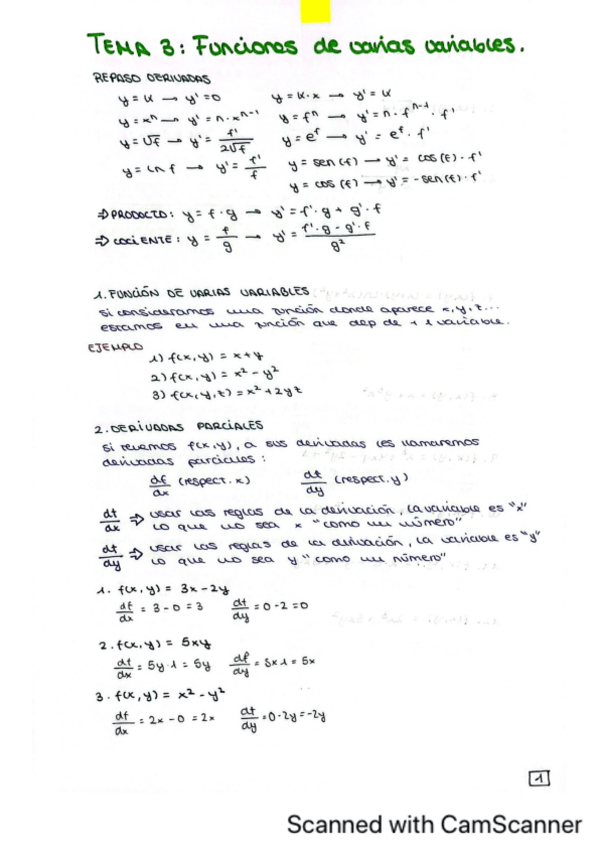 TEMA 3: Funciones de varias variables.
REPASO DERIVADAS
y = K → y' = 0 y = K·x → y' = K
y = xⁿ → y' = n·xⁿ⁻¹ y = fⁿ → y' = n·fⁿ⁻¹·f'
y = √f → y' = f'/2√f y = e^f → y' = e^f·f'
y = Ln f → y' = f'/f y = sen(f) → y' = cos(f)·f'
y = cos(f) → y' = -sen(f)·f'
⇒ PRODUCTO: y = f·g → y' = f'·g + g'·f
⇒ COCIENTE: y = f/g → y' = f'·g - g'·f / g²
1. FUNCIÓN DE VARIAS VARIABLES
si consideramos una función donde aparece x, y, z...
estamos en una función que dep de + 1 variable.
EJEMPLO
1) f(x,y) = x+y
2) f(x,y) = x² - y²
3) f(x,y,z) = x² + 2yz
2. DERIVADAS PARCIALES
si tenemos f(x,y), a sus derivadas les llamaremos
derivadas parciales:
df/dx (respect. x) df/dy (respect. y)
df/dx ⇒ usar las reglas de la derivación, la variable es "x"
lo que no sea x "como un número"
df/dy ⇒ usar las reglas de la derivación, la variable es "y"
lo que no sea y "como un número"
1. f(x,y) = 3x - 2y
df/dx = 3 - 0 = 3 df/dy = 0 - 2 = 0
2. f(x,y) = 5xy
df/dx = 5y·1 = 5y df/dy = 5x·1 = 5x
3. f(x,y) = x² - y²
df/dx = 2x - 0 = 2x df/dy = 0 - 2y = -2y
1
Scanned with CamScanner